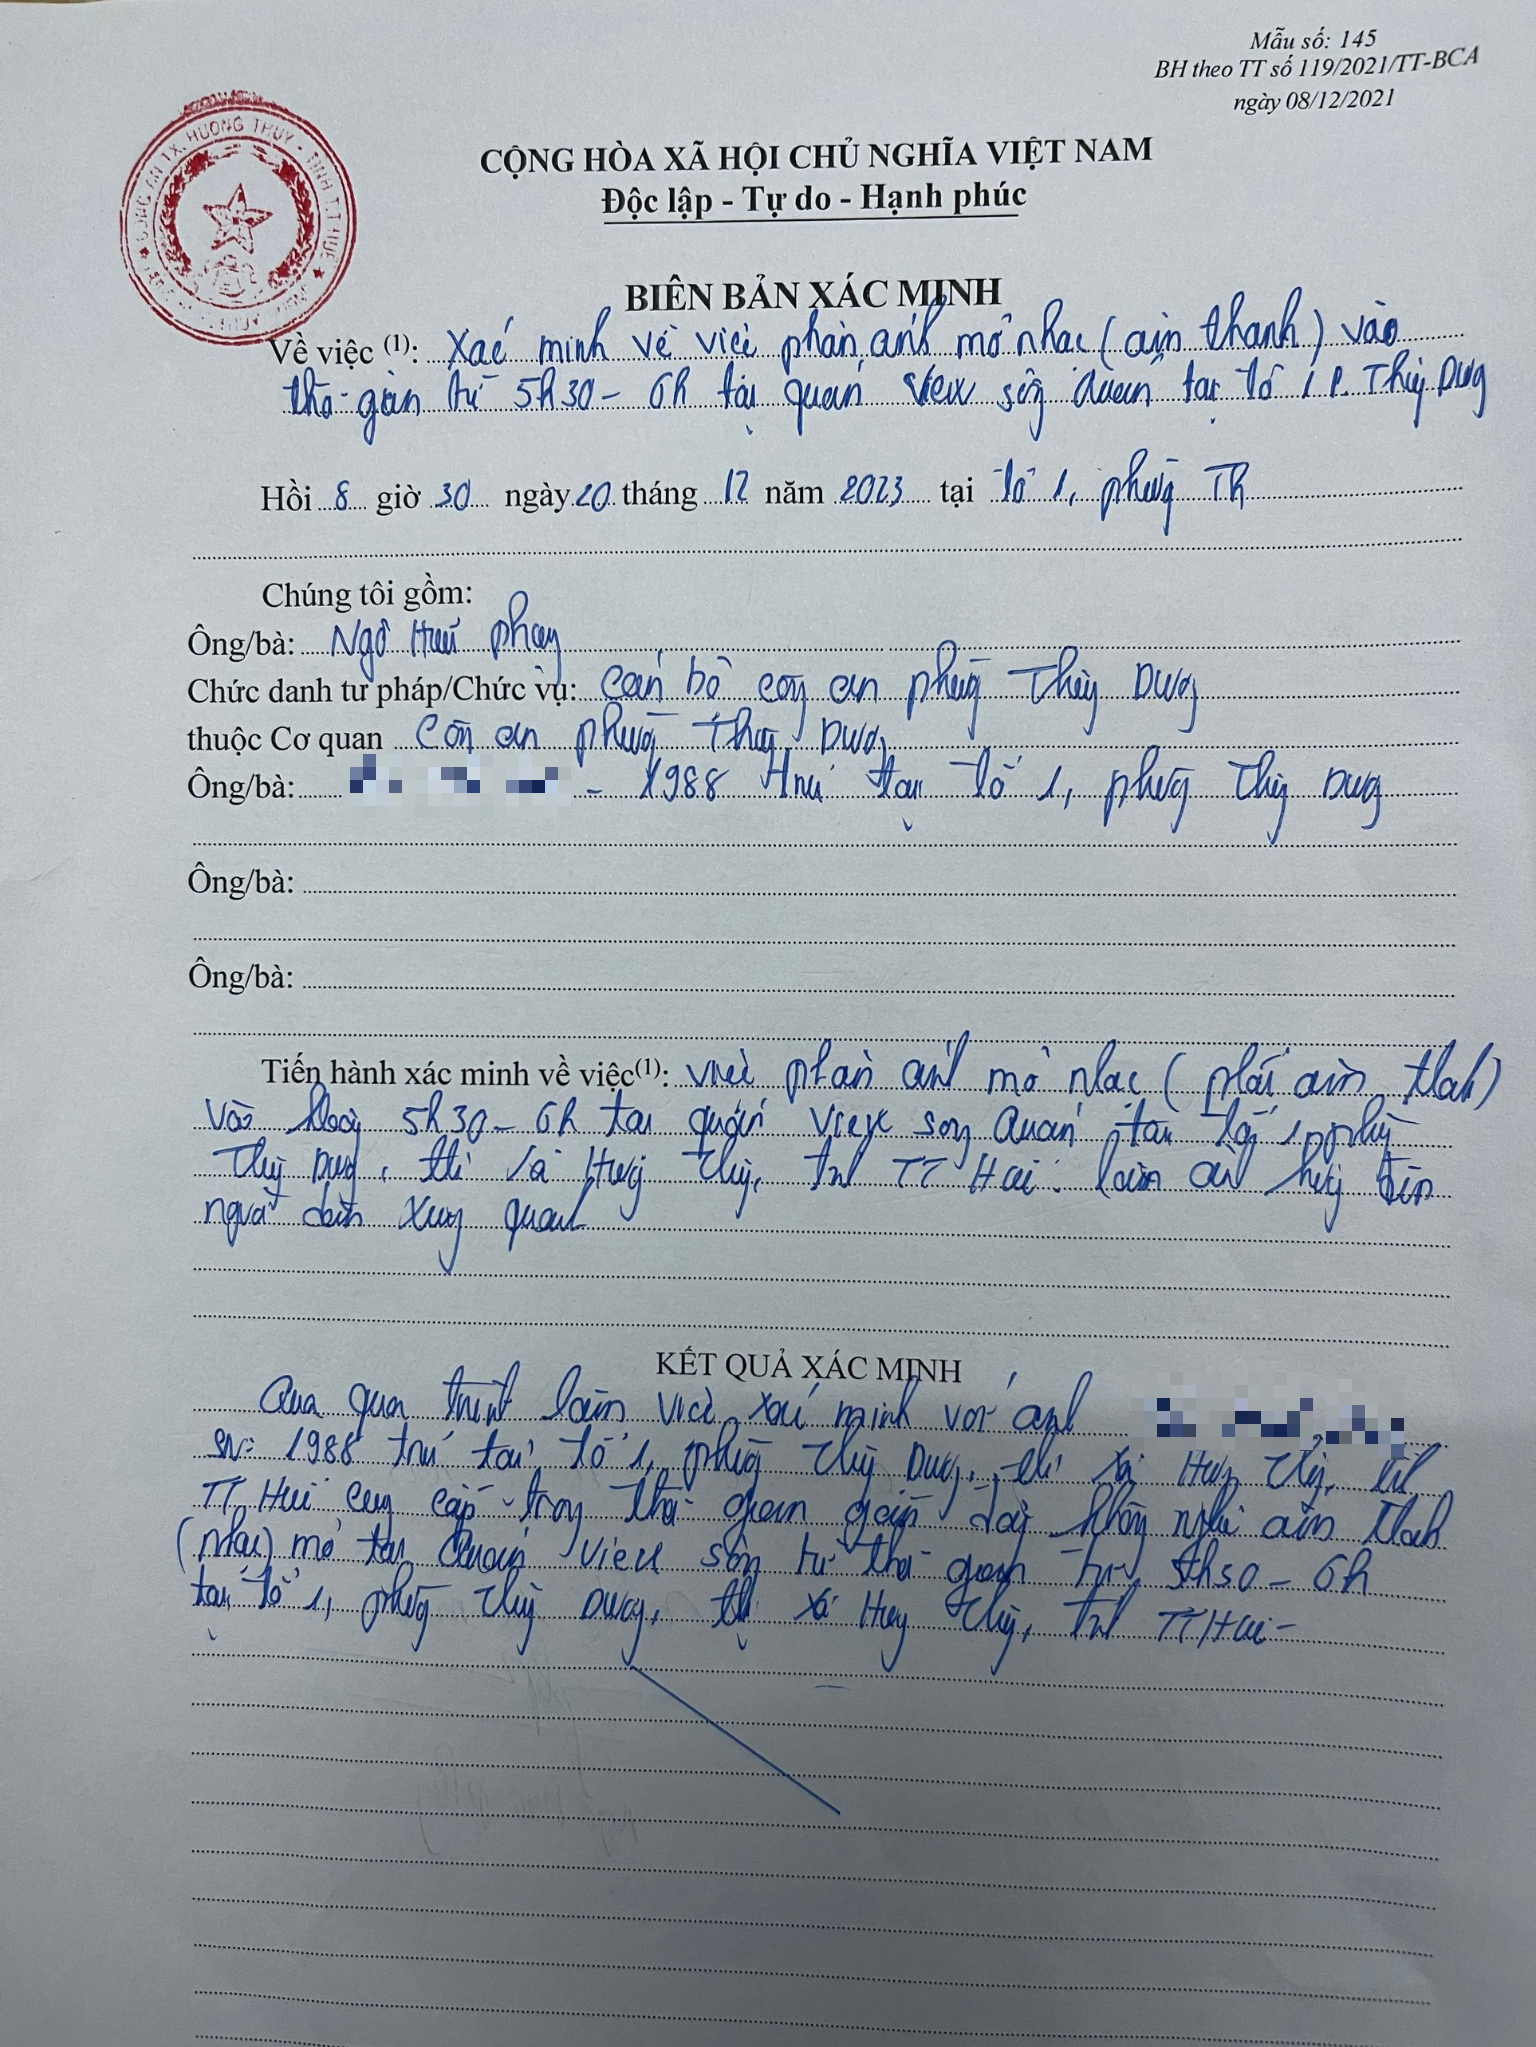 Mẫu số: 145
BH theo TT số 119/2021/TT-BCA
ngày 08/12/2021
CÔNG AN TX. HƯƠNG THỦY - TỈNH T.T HUẾ
CỘNG HÒA XÃ HỘI CHỦ NGHĨA VIỆT NAM
Độc lập - Tự do - Hạnh phúc
BIÊN BẢN XÁC MINH
Về việc (1): Xác minh về việc phản ánh mở nhạc (âm thanh) vào
thời gian từ 5h30 - 6h tại quán View sông quán tại tổ 1 P. Thủy Dương
Hồi 8 giờ 30 ngày 20 tháng 12 năm 2023 tại tổ 1, phường Th
Chúng tôi gồm:
Ông/bà: Ngô Hữu
Chức danh tư pháp/Chức vụ: Cán bộ công an phường Thủy Dương
thuộc Cơ quan Công an phường Thủy Dương
Ông/bà: - 1988 Trú tại tổ 1, phường Thủy Dương
Ông/bà:
Ông/bà:
Tiến hành xác minh về việc(1): việc phản ánh mở nhạc (phát âm thanh)
vào khoảng 5h30 - 6h tại quán View sông quán tại tổ 1, phường
Thủy Dương, thị xã Hương Thủy, tỉnh TT Huế làm ảnh hưởng đến
người dân xung quanh
KẾT QUẢ XÁC MINH
Qua quá trình làm việc, xác minh với anh
SN: 1988 trú tại tổ 1, phường Thủy Dương, thị xã Hương Thủy, tỉnh
TT Huế cung cấp trong thời gian gần đây không nghe âm thanh
(nhạc) mở tại quán View sông từ thời gian từ 5h30 - 6h
tại tổ 1, phường Thủy Dương, thị xã Hương Thủy, tỉnh TT Huế